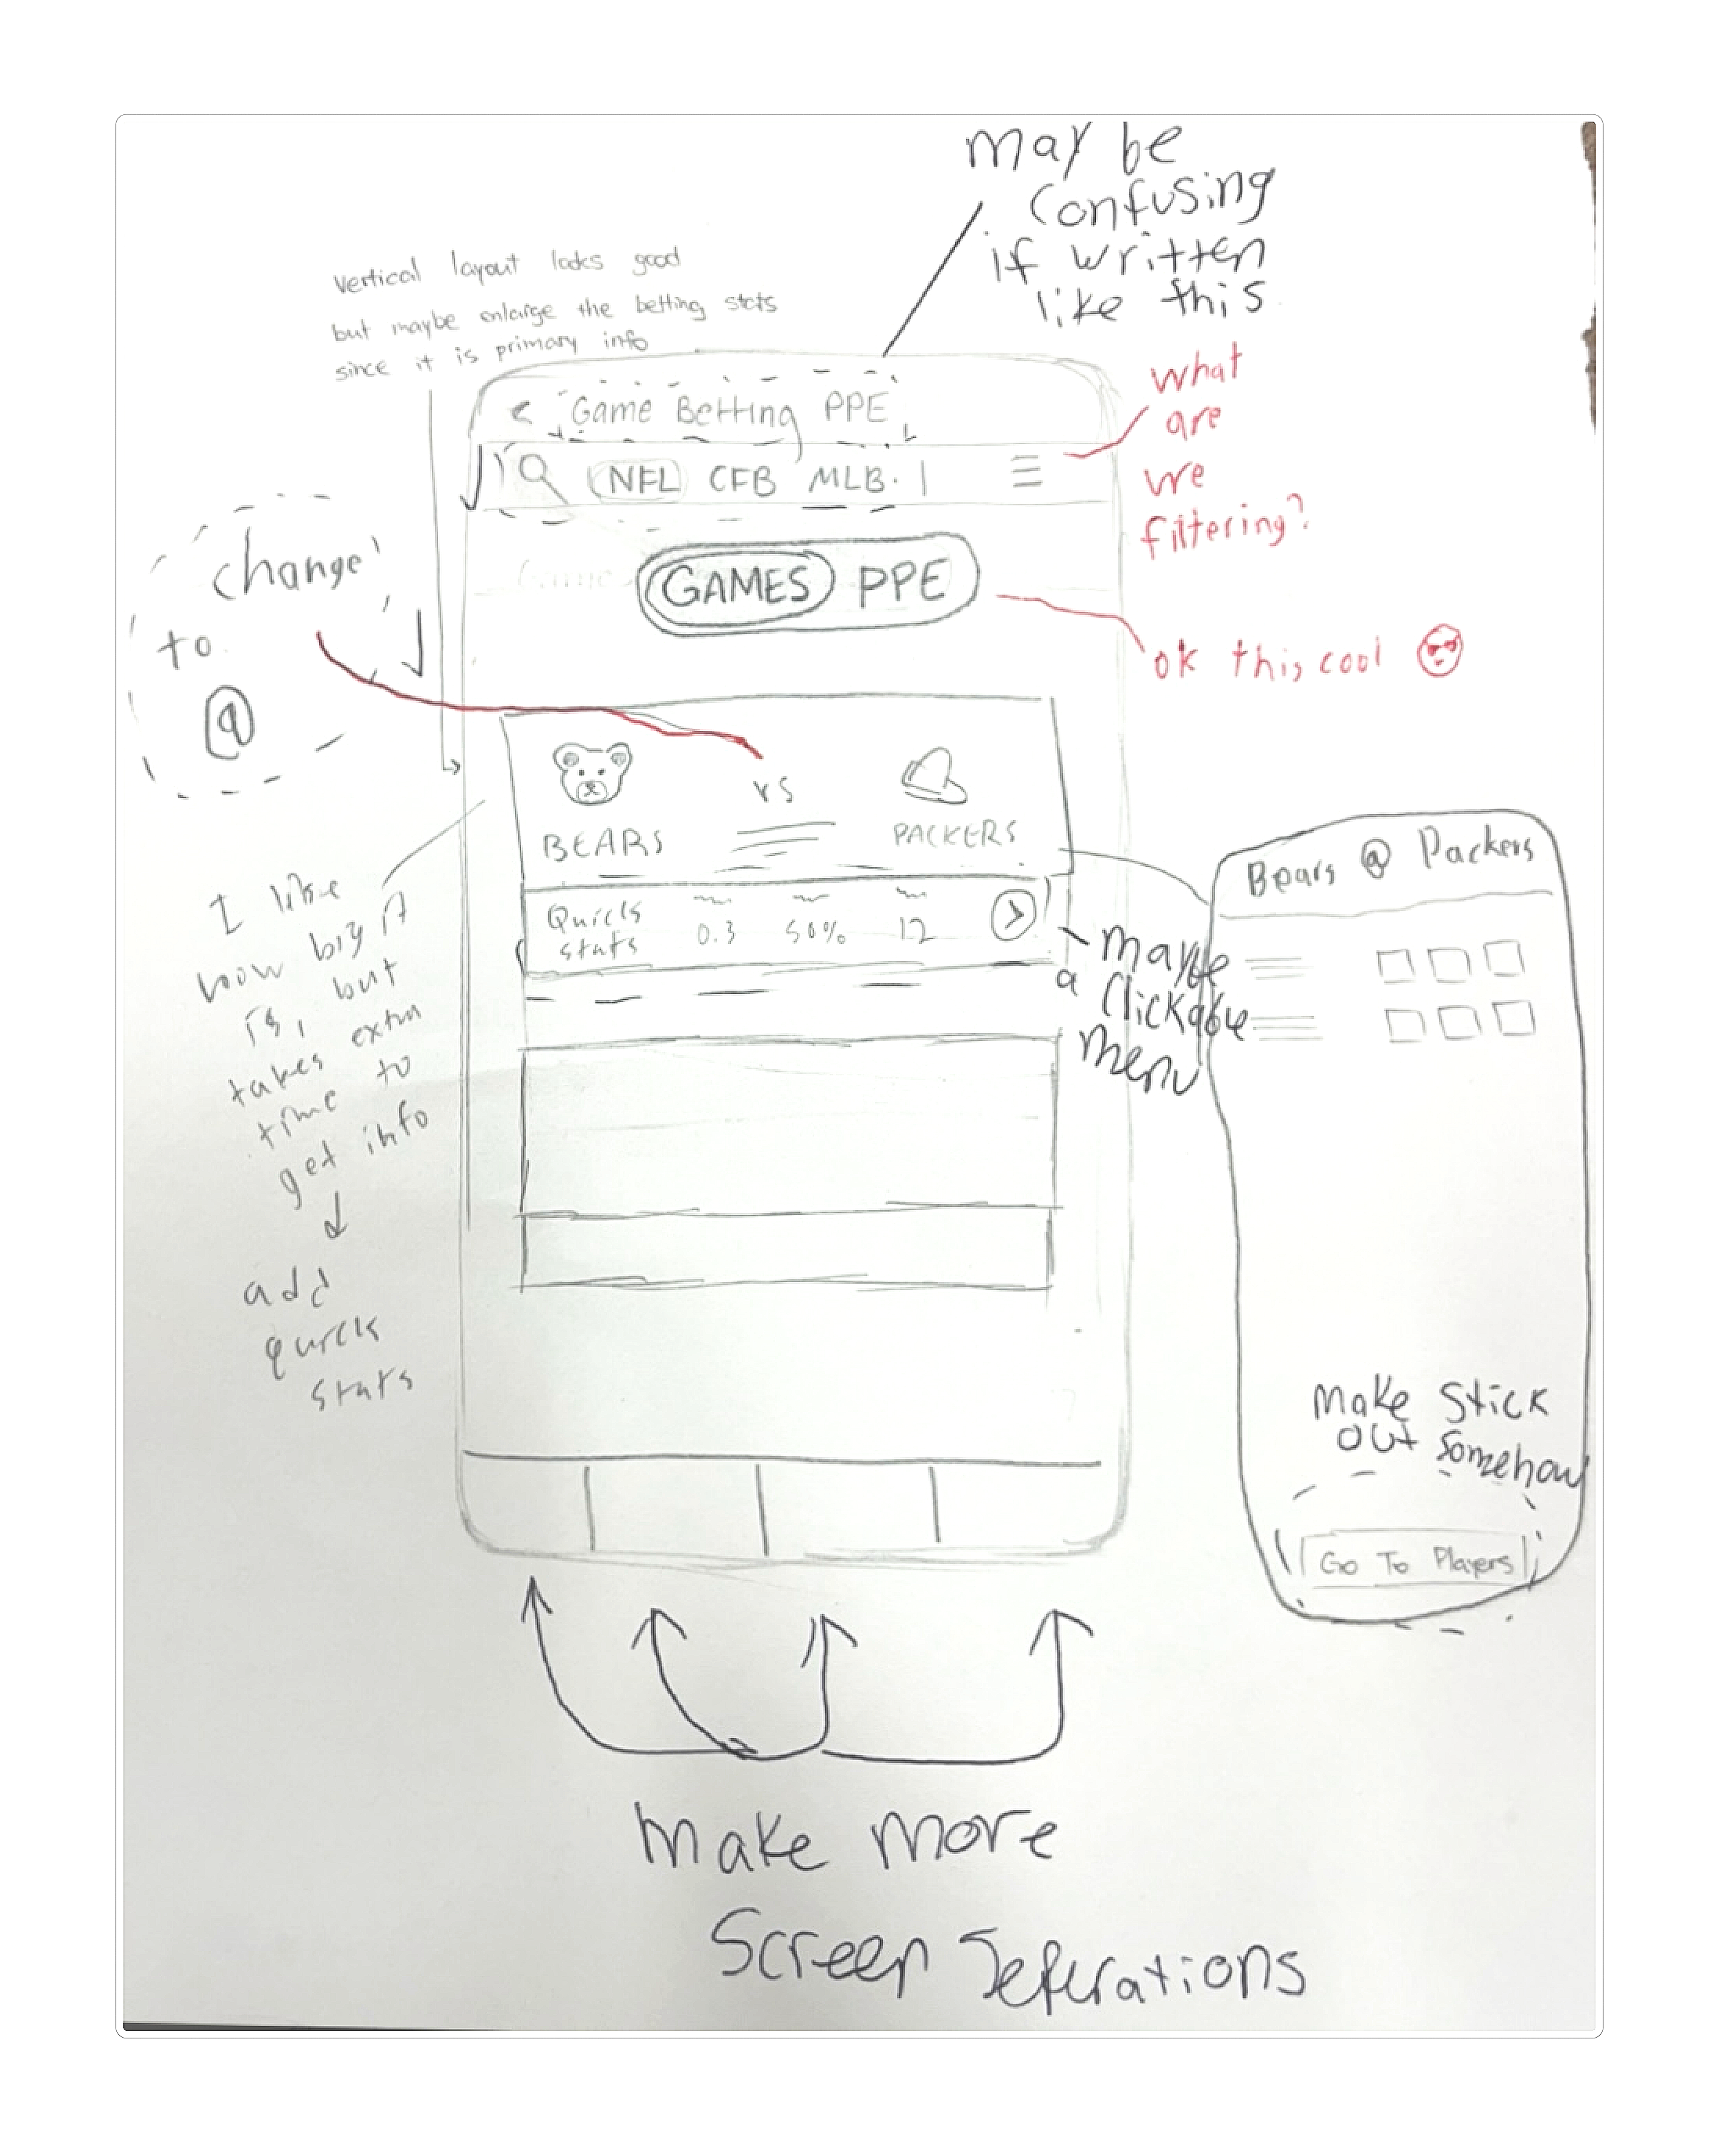 may be
confusing
if written
like this
vertical layout looks good
but maybe enlarge the betting stats
since it is primary info
what
are
we
filtering?
< Game Betting PPE
NFL CFB MLB
GAMES PPE
ok this cool
change
to
@
vs
BEARS
PACKERS
Quick
stats
0.3 50% 12
maybe
a clickable
menu
I like
how big it
is, but
takes extra
time to
get info
add
quick
stats
Bears @ Packers
Make Stick
out somehow
Go To Players
make more
Screen Seperations